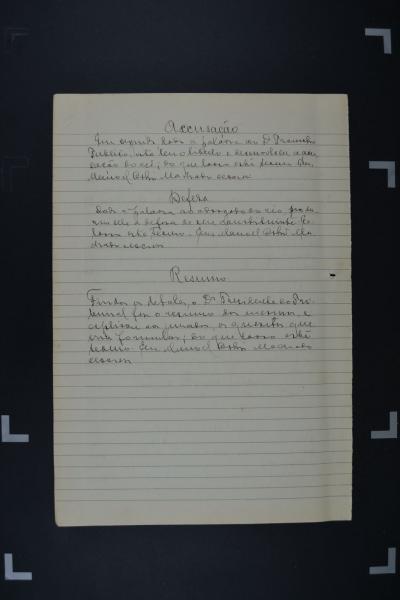 Accusação
Em seguida dada a palavra ao Dr Promotor
Publico, elle leu o libello e desenvolveu a accu-
sação do réo; do que lavro este termo. Eu,
Manoel Machado escrevi
Defesa
Dada a palavra ao advogado do réo, produ-
ziu elle a defesa de seu constituinte. E
lavro este termo. Eu, Manoel Ma-
chado escrevi
Resumo
Findos os debates, o Dr Presidente do Tri-
bunal fez o resumo dos mesmos e
explicou ao jurados, os quesitos que
formulou; do que lavro este
termo. Eu Manoel Machado
escrevi